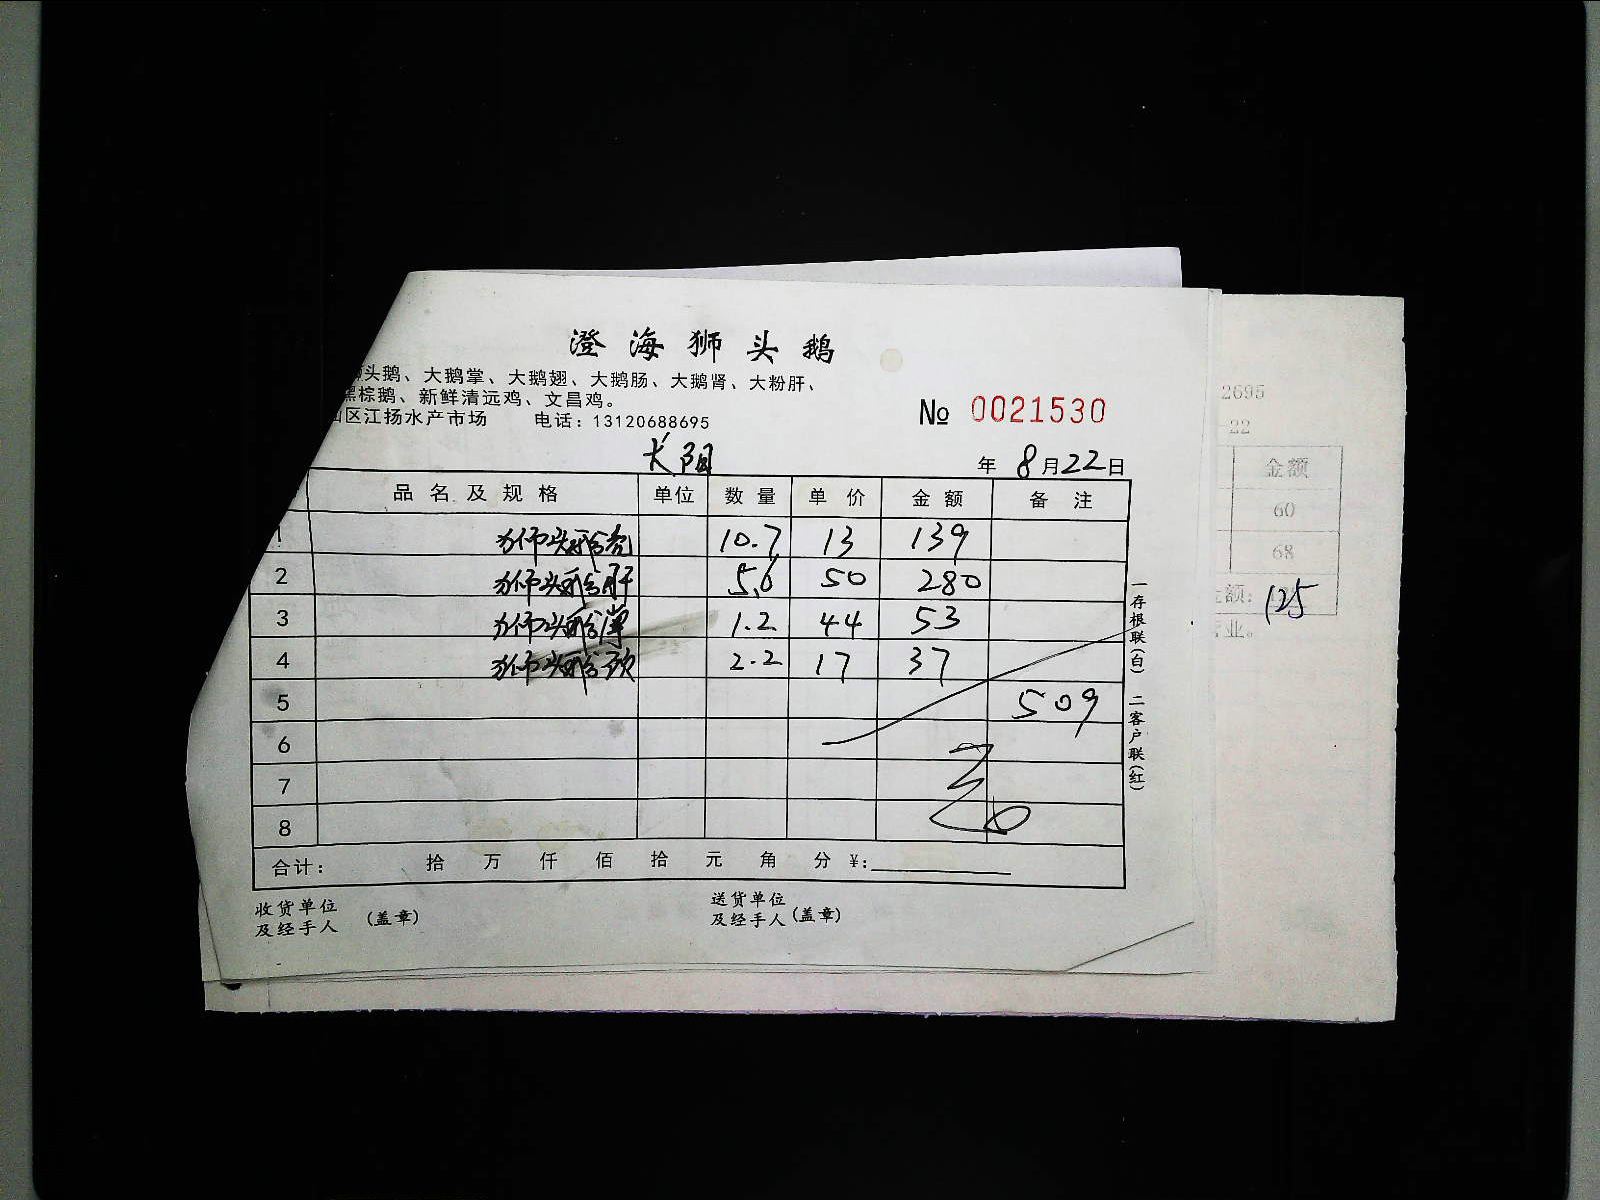 澄海狮头鹅
头鹅、大鹅掌、大鹅翅、大鹅肠、大鹅肾、大粉肝、
黑棕鹅、新鲜清远鸡、文昌鸡。
山区江扬水产市场 电话：13120688695
№ 0021530
长阳
年 8月22日
品名及规格 单位 数量 单价 金额 备注
1 狮头鹅壳 10.7 13 139
2 狮头鹅肝 5.6 50 280
3 狮头鹅掌 1.2 44 53
4 狮头鹅颈 2.2 17 37
5 509
6
7
8
合计： 拾 万 仟 佰 拾 元 角 分 ¥:
收货单位
及经手人 (盖章)
送货单位
及经手人 (盖章)
一存根联(白) 二客户联(红)
2695
-22
金额
60
68
额: 125
业。